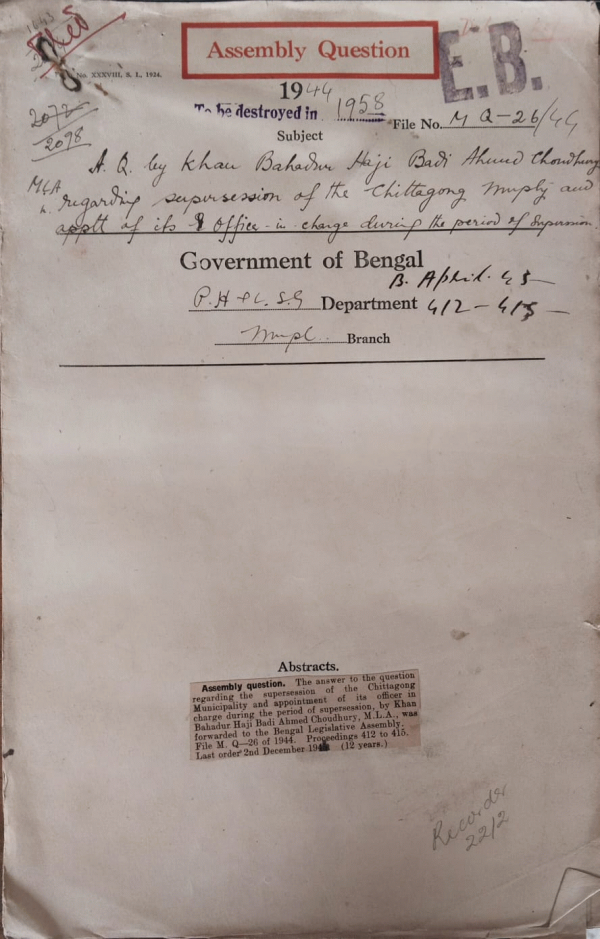 Filed
Assembly Question
E.B.
No. XXXVIII, S. I., 1924.
1944
To be destroyed in 1958
File No. M Q-26/44
2072
2098
Subject
A. Q. by Khan Bahadur Haji Badi Ahmed Choudhury
MLA
regarding supersession of the Chittagong Muplty and
apptt of its Officer-in-charge during the period of supersession.
Government of Bengal
B. April. 45
P.H & L.S.G Department 412-415
Mupl. Branch
Abstracts.
Assembly question. The answer to the question
regarding the supersession of the Chittagong
Municipality and appointment of its officer in
charge during the period of supersession, by Khan
Bahadur Haji Badi Ahmed Choudhury, M.L.A., was
forwarded to the Bengal Legislative Assembly.
File M. Q—26 of 1944. Proceedings 412 to 415.
Last order 2nd December 194 (12 years.)
Recorder
22/2